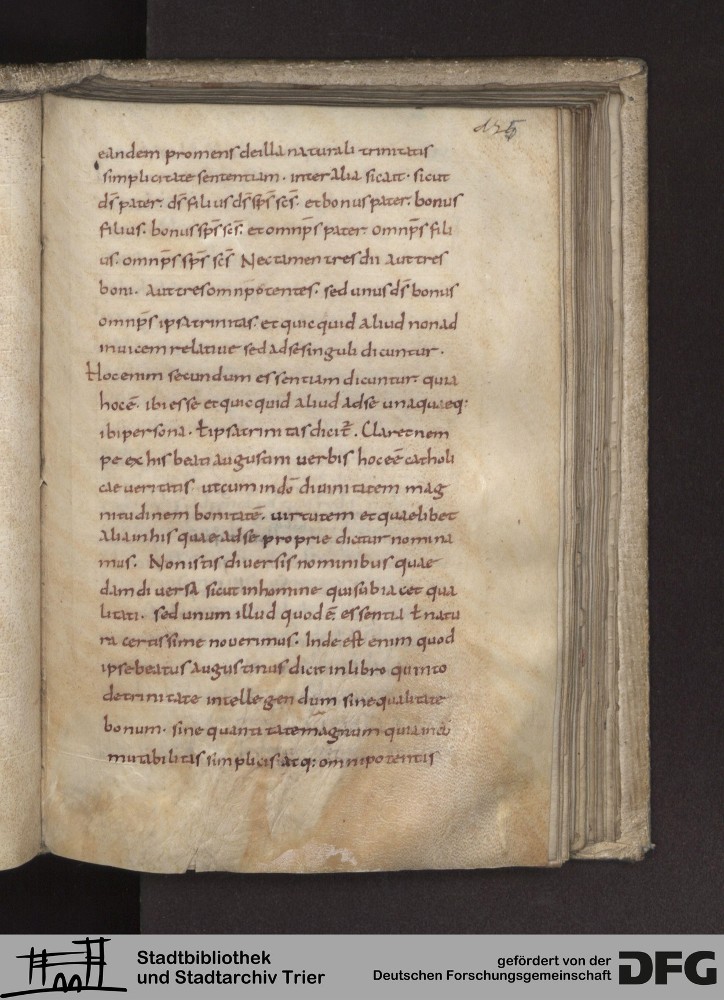 125
eandem promens deilla naturali trinitatis
simplicitate sententiam. inter alia sic ait. sicut
dš pater. dš filius dš spš scš. et bonus pater. bonus
filius. bonus spš scš. et omnp̄s pater omnp̄s fili
us. omnp̄s spš scš Nec tamen tres dii aut tres
boni. Aut tres omnipotentes. sed unus dš bonus
omnp̄s ipsa trinitas. et quicquid aliud non ad
invicem relative sed ad se singuli dicuntur.
Hoc enim secundum essentiam dicuntur quia
hoc ē. ibi esse et quicquid aliud ad se unaquaeq:
ibi persona. ł ipsa trinitas dicit̄. Claret nem
pe ex his beati augustini verbis hoc eē catholi
cae veritatis ut cum in dō divinitatem mag
nitudinem bonitatē. virtutem et quaelibet
alia in his quae ad se proprie dictur nomina
mus. Non istis diversis nominibus quae
dam diversa sicut in homine qui subiacet qua
litati. sed unum illud quod ē essentia ł natu
ra certissime noverimus. Inde est enim quod
ipse beatus augustinus dicit in libro quinto
de trinitate intellegendum sine qualitate
bonum. sine quantitate magnum quia in ei
mutabilitas simplicis atq: omnipotentis
Stadtbibliothek
und Stadtarchiv Trier
gefördert von der
Deutschen Forschungsgemeinschaft
DFG